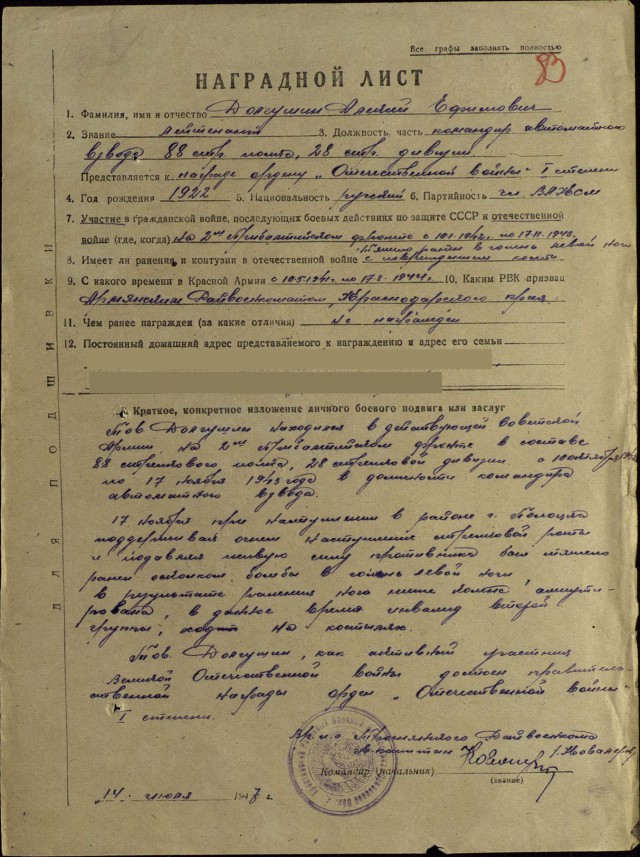 Все графы заполнять полностью
83
НАГРАДНОЙ ЛИСТ
1. Фамилия, имя и отчество Долгушин Ефимович
2. Звание лейтенант 3. Должность, часть командир автоматного
взвода 88 стр. полка, 28 стр. дивизии
Представляется к награде ордену „Отечественной войны" I степени
4. Год рождения 1922 5. Национальность русский 6. Партийность чл. ВЛКСМ
7. Участие в гражданской войне, последующих боевых действиях по защите СССР и отечественной
войне (где, когда) на 2ом Прибалтийском фронте с по 17.11.1943г.
Тяжело ранен в голень левой ноги
8. Имеет ли ранения и контузии в отечественной войне с повреждением
9. С какого времени в Красной Армии с по 1944г. 10. Каким РВК призван
Армянским Райвоенкоматом, Краснодарского края
11. Чем ранее награжден (за какие отличия) не награжден
12. Постоянный домашний адрес представляемого к награждению и адрес его семьи
ДЛЯ ПОДШИВКИ
Краткое, конкретное изложение личного боевого подвига или заслуг
Тов. Долгушин находился в действующей Советской
Армии на 2ом Прибалтийском фронте в составе
88 стрелкового полка, 28 стрелковой дивизии с
по 17 ноября 1943 года в должности командира
автоматного взвода.
17 ноября при наступлении в районе г. Полоцка
поддерживая огнем наступление стрелковой роты
и подавляя живую силу противника был тяжело
ранен осколком бомбы в голень левой ноги
в результате ранения нога ниже колена ампути-
рована, в данное время инвалид второй
группы, ходит на костылях.
Тов. Долгушин, как активный участник
Великой Отечественной Войны достоин правитель-
ственной награды орден „Отечественной войны"
I степени.
Вр.и.о. Райвоенкома
капитан
Командир (начальник)
(звание)
14 июня 1947 г.